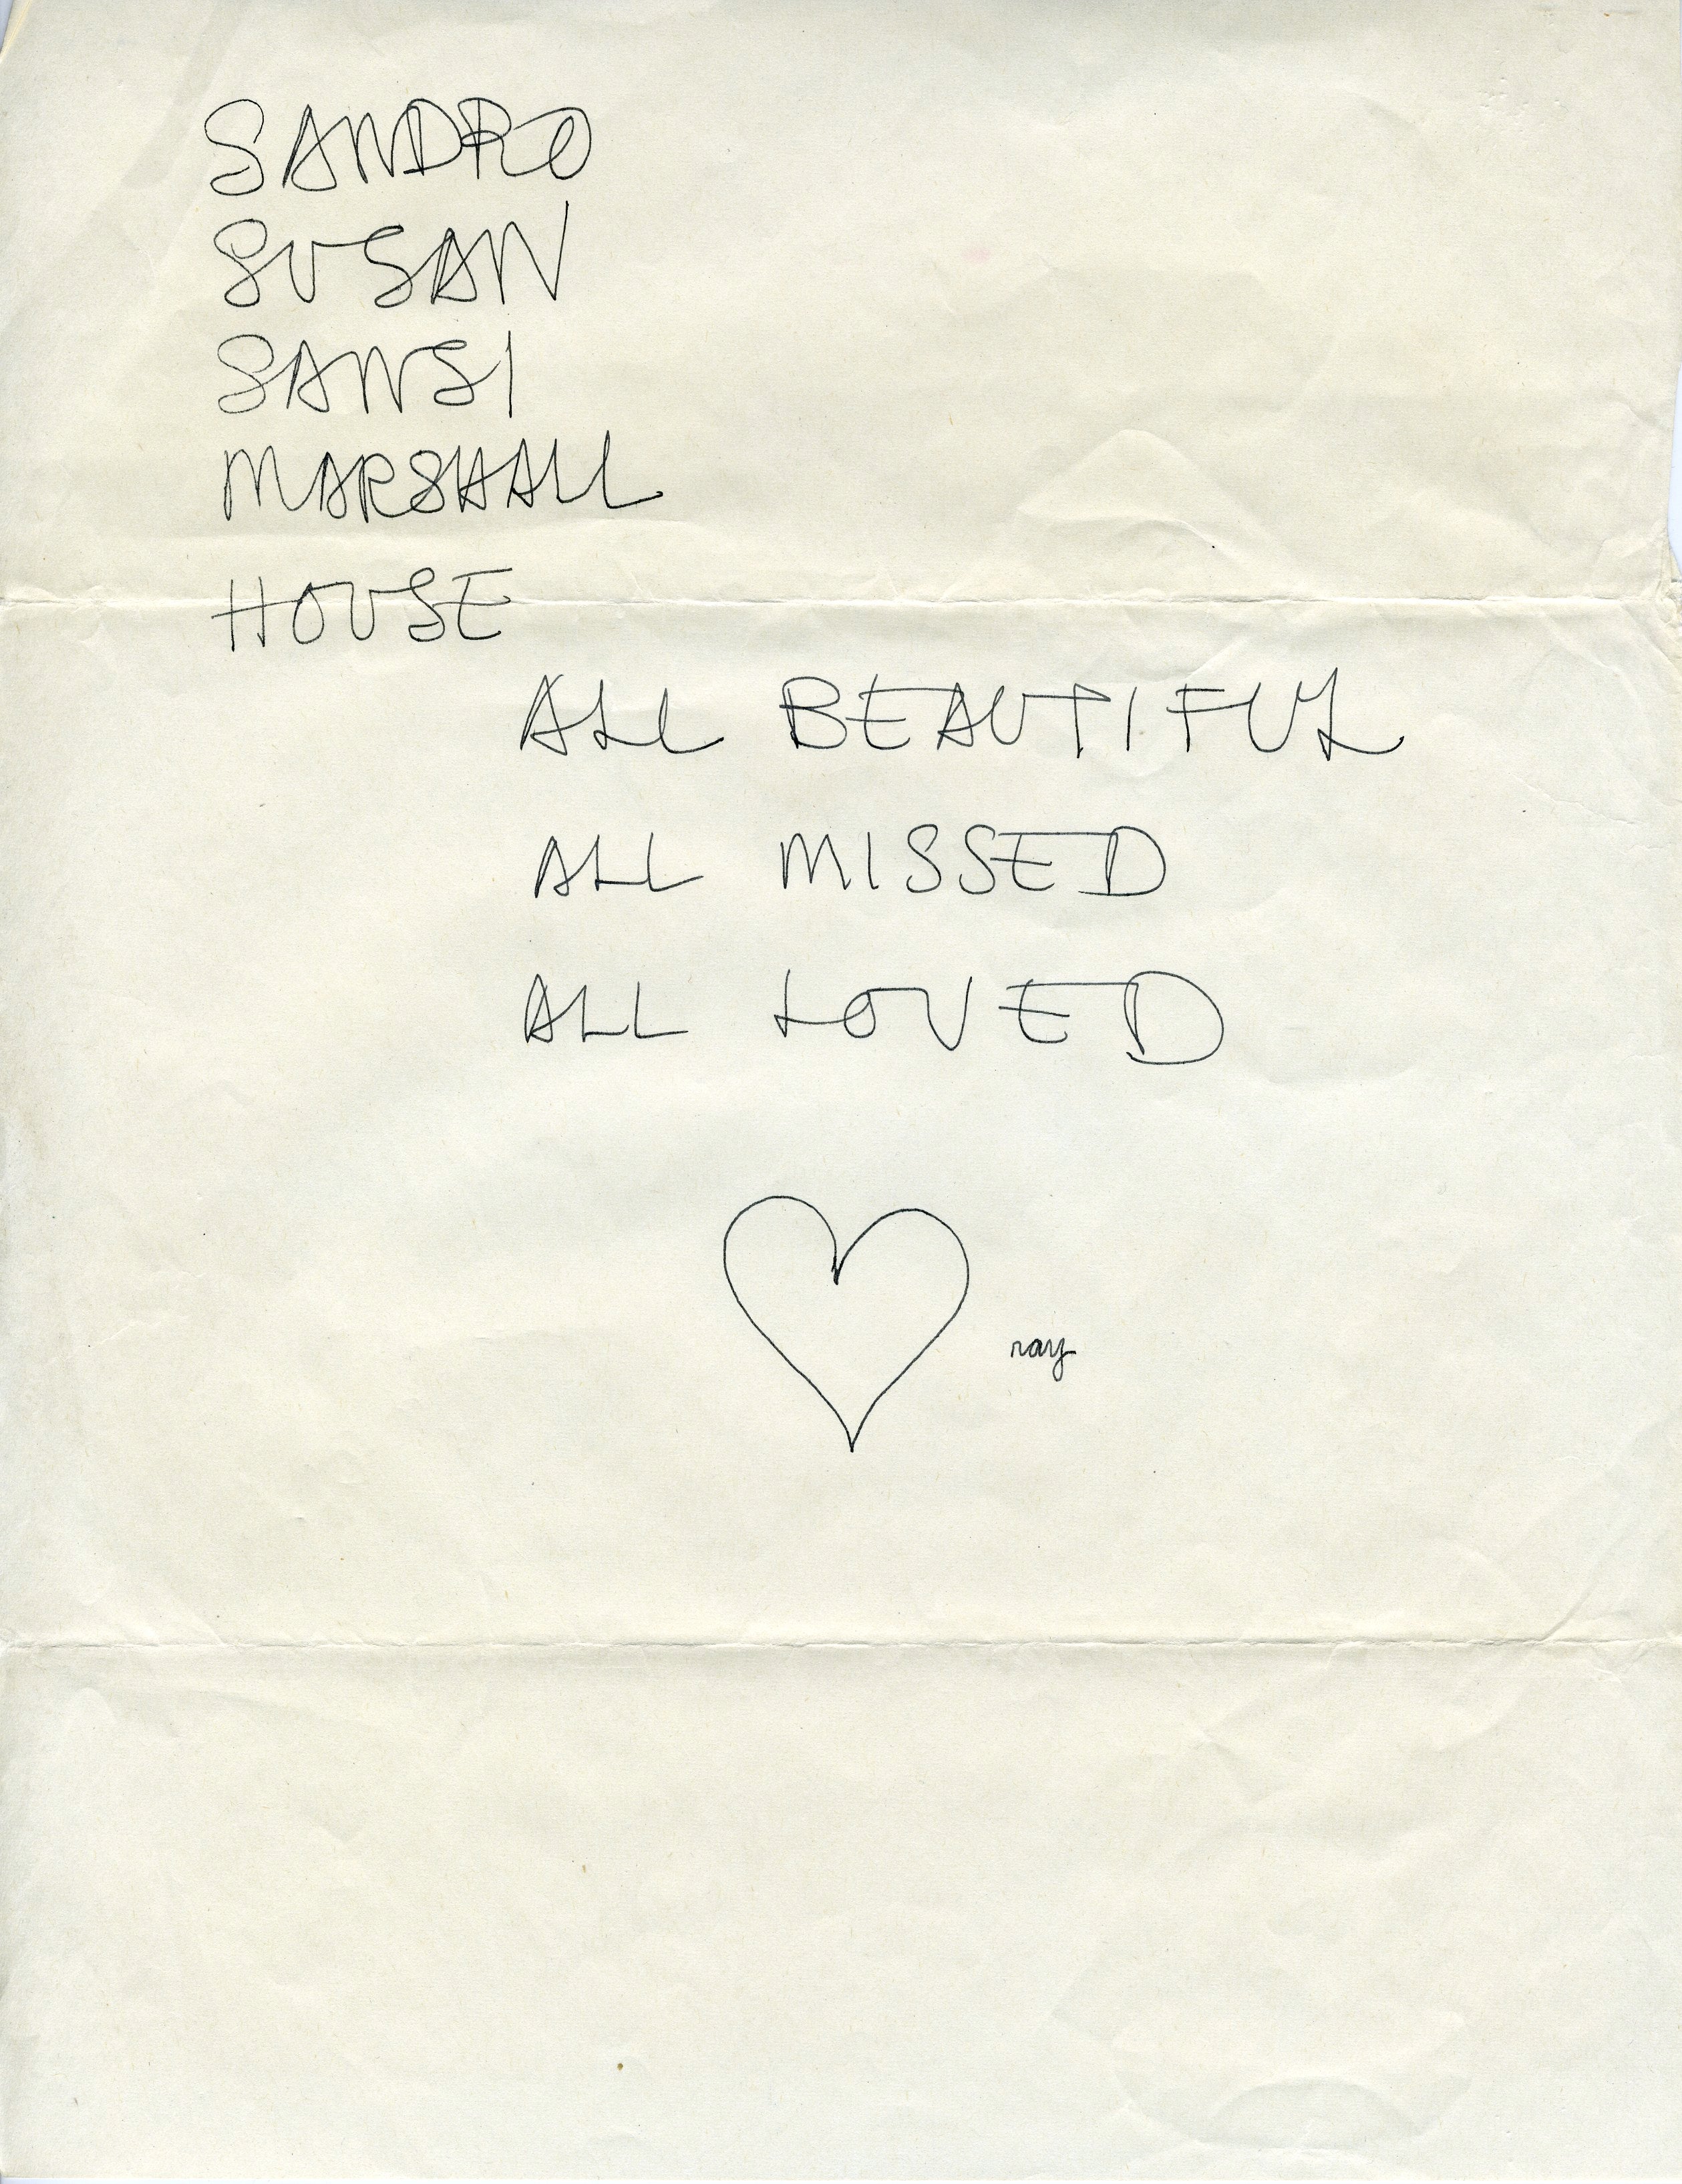 SANDRO
SUSAN
SANSI
MARSHALL
HOUSE
ALL BEAUTIFUL
ALL MISSED
ALL LOVED
ray